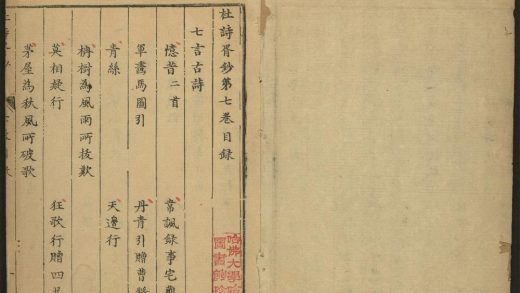 杜詩胥鈔第七卷目録
七言古詩
憶昔二首 韋諷録事宅觀
軍畫馬圖引 丹青引贈曹將
青絲 天邊行
柟樹為風雨所拔歎
莫相疑行 狂歌行贈四
茅屋為秋風所破歌
哈佛大學
圖書館珍